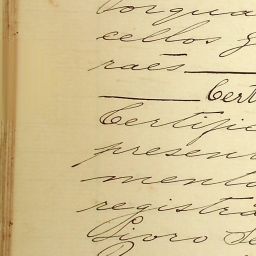 Torqua
cellos G
raes
Cert
Certific
present
mento
registra
Livro Se